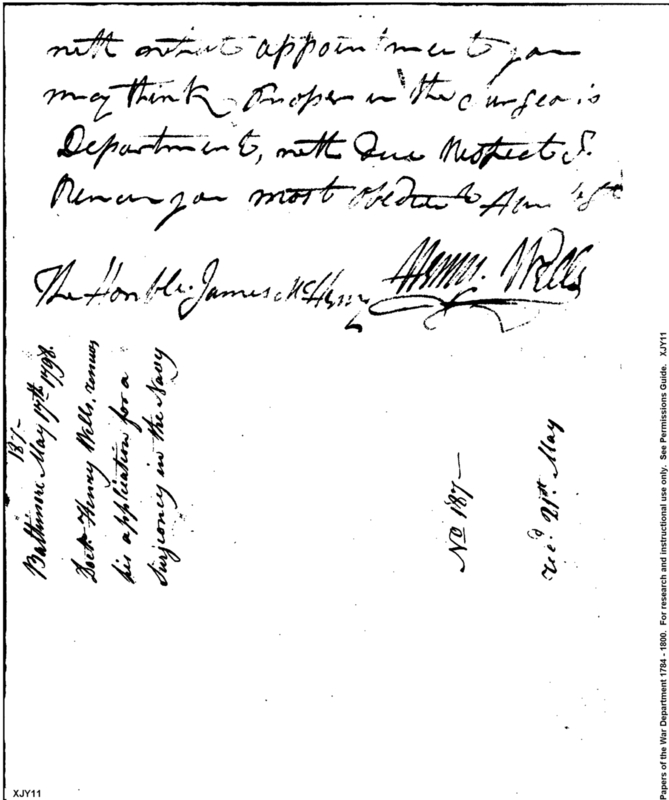 with what appointment you
may think Proper in the Surgeo's
Department, with due Respect &.
Remain you most obedient Hum
The Honble. James McHenry
Henry. Wells
187-
Baltimore May 17th 1798.
Doctr Henry Wells, renews
his application for a
Surgeoncy in the Navy
No 187-
rec'd 21st May
Papers of the War Department 1784 - 1800. For research and instructional use only. See Permissions Guide. XJY11
XJY11